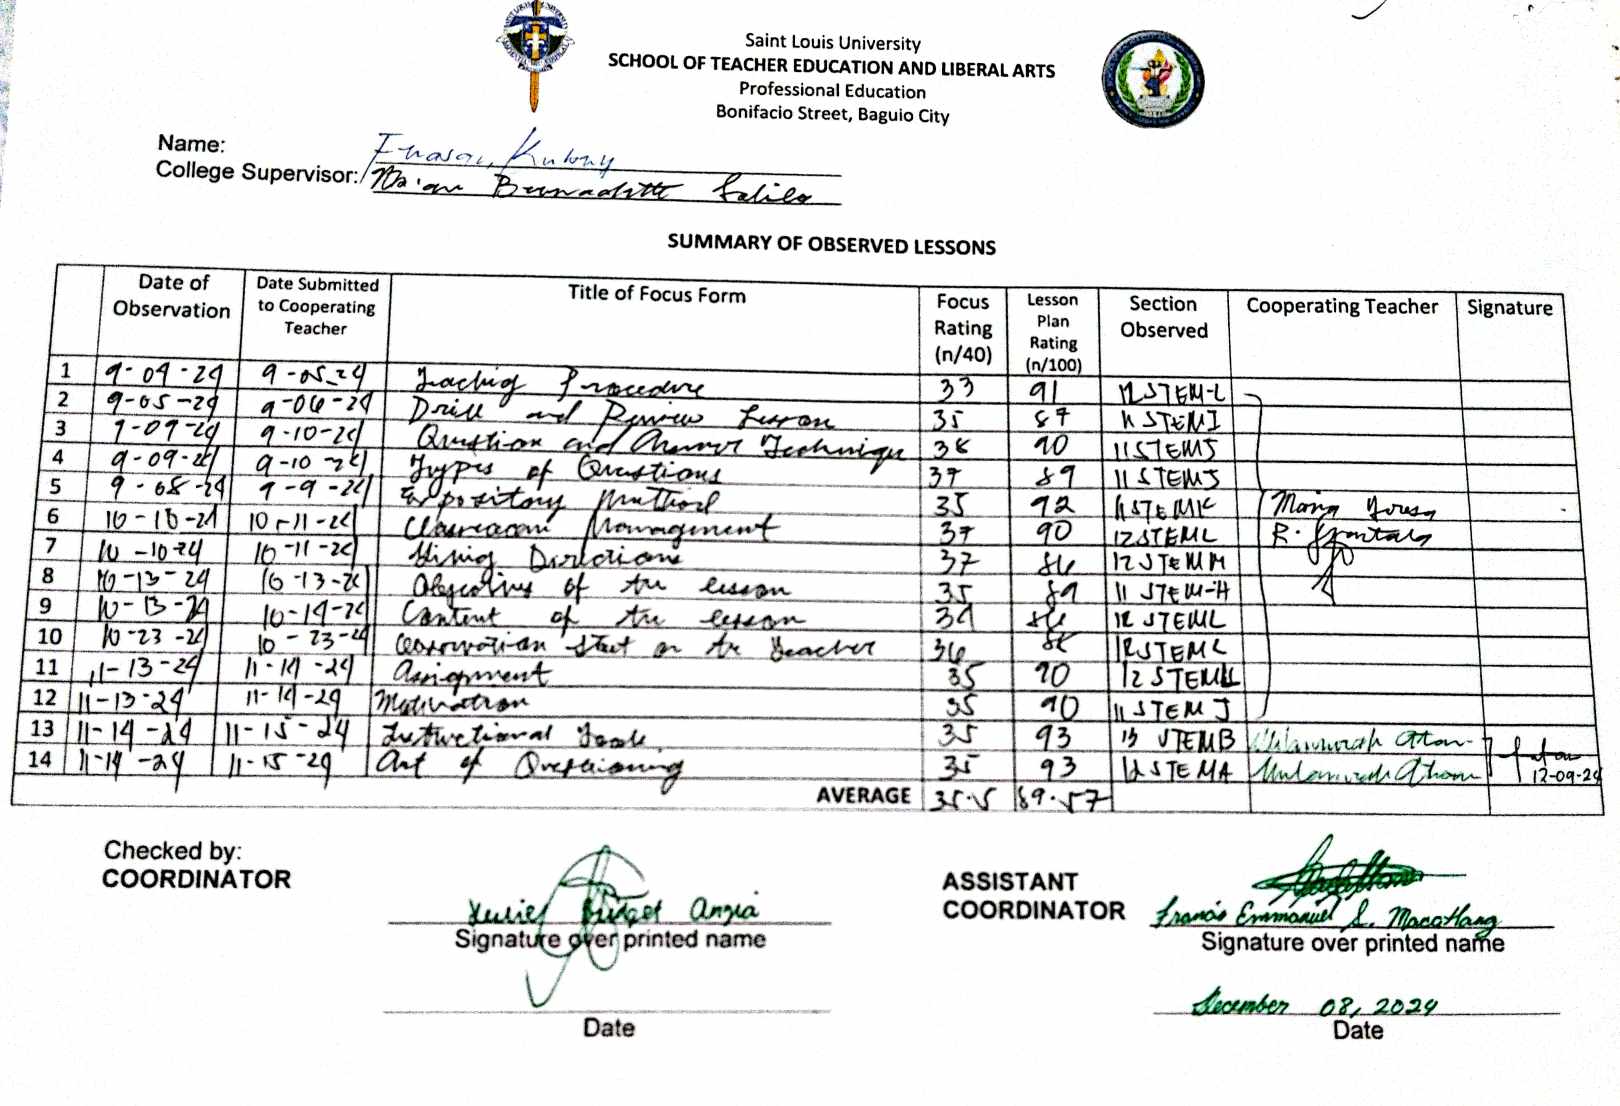 Saint Louis University
SCHOOL OF TEACHER EDUCATION AND LIBERAL ARTS
Professional Education
Bonifacio Street, Baguio City
Name:
College Supervisor: Bernadette
SUMMARY OF OBSERVED LESSONS
Date of Observation Date Submitted to Cooperating Teacher Title of Focus Form Focus Rating (n/40) Lesson Plan Rating (n/100) Section Observed Cooperating Teacher Signature
1 9-04-24 9-05-24 Teaching Procedure 33 91 12 STEM-L
2 9-05-24 9-06-24 Drill and Review Lesson 35 87 11 STEM I
3 9-09-24 9-10-24 Question and Answer Technique 38 90 11 STEM J
4 9-09-24 9-10-24 Types of Questions 37 89 11 STEM J
5 9-08-24 9-9-24 Expository Method 35 92 11 STEM K Maria
6 10-10-24 10-11-24 Classroom Management 37 90 12 STEM L R.
7 10-10-24 10-11-24 Giving Directions 37 86 12 STEM M
8 10-13-24 10-13-24 Objectives of the lesson 35 89 11 STEM-H
9 10-13-24 10-14-24 Content of the lesson 34 86 12 STEM L
10 10-23-24 10-23-24 Observation Sheet on the Teacher 36 12 STEM L
11 11-13-24 11-14-24 Assignment 35 90 12 STEM
12 11-13-24 11-14-24 Motivation 35 90 11 STEM J
13 11-14-24 11-15-24 Instructional Tools 35 93 STEM B
14 11-14-24 11-15-24 Art of Questioning 35 93 12 STEM A 12-09-24
AVERAGE 35.5 89.57
Checked by:
COORDINATOR
Bridget
Signature over printed name
Date
ASSISTANT
COORDINATOR
Francis Emmanuel S. Macatlang
Signature over printed name
December 08, 2024
Date